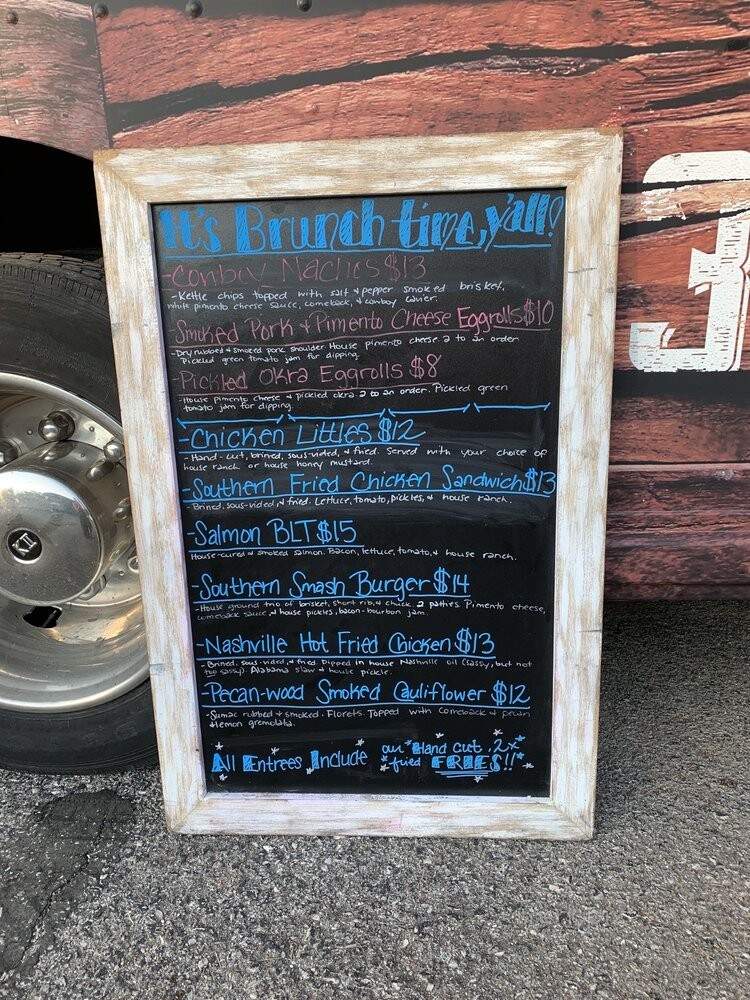 It's Brunch time, y'all!
-Cowboy Nachos $13
-Kettle chips topped with salt & pepper smoked brisket,
white pimento cheese sauce, comeback, & cowboy cavier.
-Smoked Pork & Pimento Cheese Eggrolls $10
-Dry rubbed & smoked pork shoulder. House pimento cheese. 2 to an order
Pickled green tomato jam for dipping.
-Pickled Okra Eggrolls $8
-House pimento cheese & pickled okra 2 to an order. Pickled green
tomato jam for dipping.
-Chicken Littles $12
-Hand-cut, brined, sous-vided, & fried. Served with your choice of
house ranch or house honey mustard.
-Southern Fried Chicken Sandwich $13
-Brined, sous-vided, & fried. Lettuce, tomato, pickles, & house ranch.
-Salmon BLT $15
House-cured & smoked salmon. Bacon, lettuce, tomato, & house ranch.
-Southern Smash Burger $14
-House ground trio of brisket, short rib, & chuck. 2 patties. Pimento cheese,
comeback sauce, & house pickles, bacon-bourbon jam.
-Nashville Hot Fried Chicken $13
-Brined, sous-vided, & fried. Dipped in house Nashville oil (sassy, but not
too sassy). Alabama slaw & house pickle.
-Pecan-wood Smoked Cauliflower $12
-Sumac rubbed & smoked. Florets. Topped with comeback & pecan
& lemon gremolata.
All Entrees Include our *Hand cut, 2x*
*fried FRIES!!*